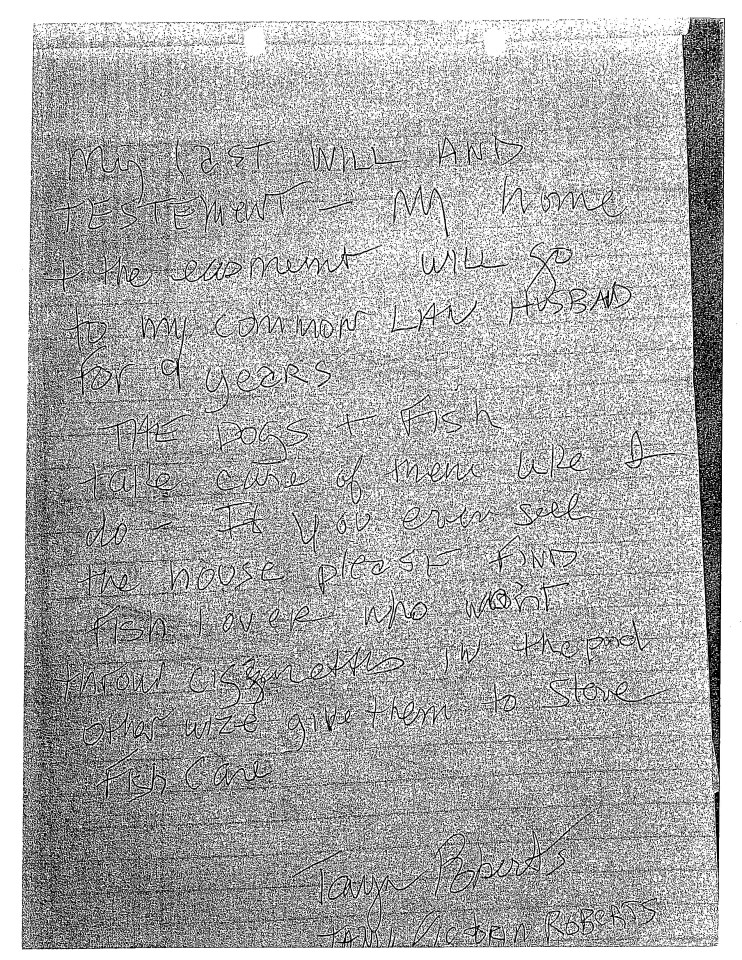 My last WILL AND
TESTEMENT - My home
+ the easment WILL go
to my common LAW HUSBAD
for 9 years
THE DOGS + Fish
take care of them like I
do - If you even sell
the house please FIND
Fish lover who won't
throw ciggarettes in the pond
other wize give them to store
Fish Care
Tanya Roberts
ROBERTS